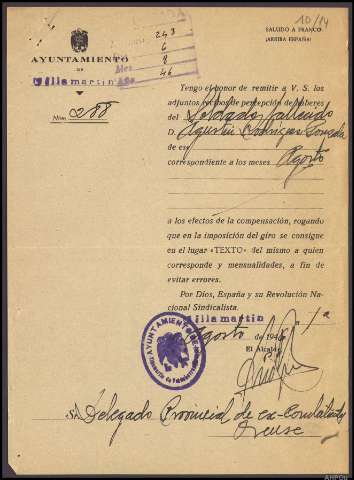 10/14
SALUDO A FRANCO:
(ARRIBA ESPAÑA)
243
6
8
Mes
46
AYUNTAMIENTO
DE
Villamartin
Núm. 0288
Tengo el honor de remitir a V. S. los
adjuntos recibos de percepción de haberes
del Soldado fallecido
D. Agustin
de es
correspondiente a los meses Agosto
a los efectos de la compensación, rogando
que en la imposición del giro se consigne
en el lugar «TEXTO» del mismo a quien
corresponde y mensualidades, a fin de
evitar errores.
Por Dios, España y su Revolución Na-
cional Sindicalista.
Villamartin 1º
Agosto de 194
El Alcalde
AYUNTAMIENTO
Sr. Delegado Provincial de ex-Combatientes
Orense
AHPOu